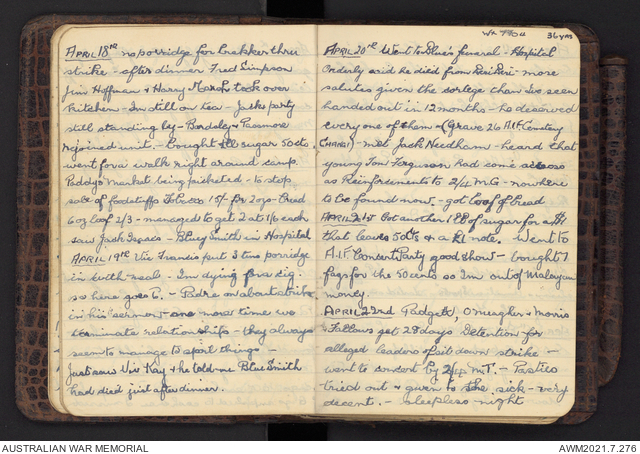 APRIL 18TH no porridge for brekker thru
strike - after dinner Fred Simpson
Jim Hoffman & Harry Marsh took over
kitchen - Im still on tea - Jacks party
still standing by - Bardsley & Passmore
rejoined unit. - bought 1lb sugar 50cts.
went for a walk right around camp.
Paddys Market being picketed - to stop
sale of foodstuffs Tobacco 15/- for 2ozs - Bread
6oz loaf 2/3 - managed to get 2 at 1/6 each
saw Jack Isaacs - Bluey Smith in Hospital
APRIL 19TH Vic Francis put 3 tins porridge
in with meal - Im dying for a cig.
so here goes P. - Padre on about strike
in his sermon - one more time we
relationships - they always
seem to manage to spoil things -
Just saw Vic Kay & he told me Blue Smith
had died just after dinner.
WX 7704 36 yrs
APRIL 20th Went to Blue's funeral - Hospital
Orderly said he died from Beri Beri - more
salutes given the cortege than Ive seen
handed out in 12 months - he deserved
everyone of them - (Grave 26 A.I.F. Cemetery
CHANGI) - met Jack Needham - heard that
young Tom Ferguson had come across
as Reinforcements to 2/4 M.G. - nowhere
to be found now - got loaf of bread
APRIL 21st Got another 1lb of sugar for a $1
that leaves 50cts & a £1 note. Went to
A.I.F. Concert Party good show - bought 7
fags for the 50 cents so Im out of Malayan
money.
APRIL 22nd Padgett, O'Meagher & Morris
& Fellows get 28 days Detention for
alleged leaders of sit down strike -
went to concert by 2/4 M.T. - Pasties
tried out & given to the sick - very
decent. - sleepless night
AUSTRALIAN WAR MEMORIAL
AWM2021.7.276